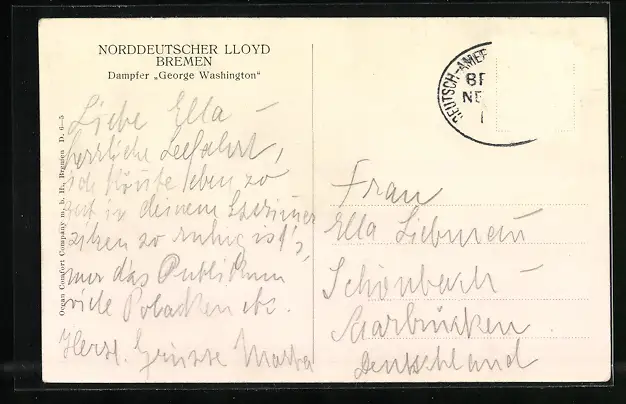 NORDDEUTSCHER LLOYD
BREMEN
Dampfer „George Washington“
Organ Comfort Company m. b. H., Bremen D. 6—5
Liebe Ella –
herrliche Seefahrt,
ich könnte eben so
gut in deinem Esszimmer
sitzen so ruhig ist's,
nur das Publikum
viele Polacken etc.
Herzl. Grüsse Martha
DEUTSCH-AMER
BR
NE
Frau
Ella Liebmann
Schönbach –
Saarbrücken.
Deutschland